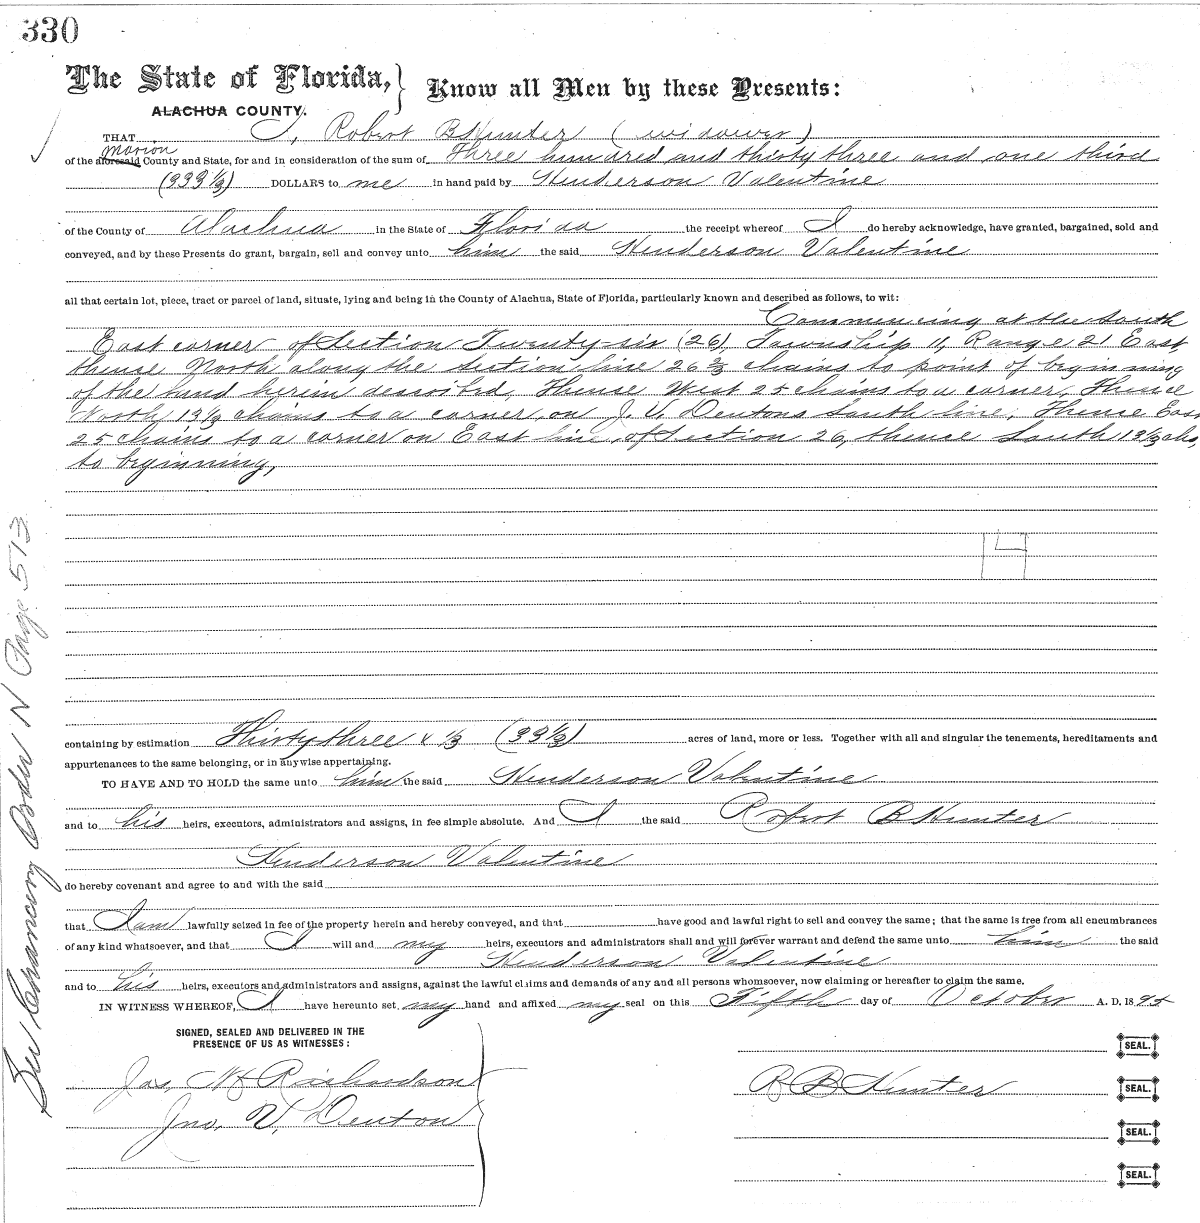 330
The State of Florida,} Know all Men by these Presents:
ALACHUA COUNTY.
THAT I, Robert B Hunter (widower)
Marion
of the aforesaid County and State, for and in consideration of the sum of Three hundred and thirty three and one third
(333 1/3) DOLLARS to me in hand paid by Henderson Valentine
of the County of Alachua in the State of Florida the receipt whereof I do hereby acknowledge, have granted, bargained, sold and
conveyed, and by these Presents do grant, bargain, sell and convey unto him the said Henderson Valentine
all that certain lot, piece, tract or parcel of land, situate, lying and being in the County of Alachua, State of Florida, particularly known and described as follows, to wit:
Commencing at the South
East corner of Section Twenty-six (26), Township 11, Range 21 East,
thence North along the section line 26 2/3 chains to point of beginning
of the land herein described, Thence West 25 chains to a corner, Thence
North 13 1/3 chains to a corner, on J. V. Dentons South line, Thence East
25 chains to a corner on East line of Section 26, thence South 13 1/3 chs,
to beginning,
containing by estimation Thirty three & 1/3 (33 1/3) acres of land, more or less. Together with all and singular the tenements, hereditaments and
appurtenances to the same belonging, or in anywise appertaining.
TO HAVE AND TO HOLD the same unto him the said Henderson Valentine
and to his heirs, executors, administrators and assigns, in fee simple absolute. And I the said Robert B Hunter
Henderson Valentine
do hereby covenant and agree to and with the said
that I am lawfully seized in fee of the property herein and hereby conveyed, and that have good and lawful right to sell and convey the same; that the same is free from all encumbrances
of any kind whatsoever, and that I will and my heirs, executors and administrators shall and will forever warrant and defend the same unto him the said
Henderson Valentine
and to his heirs, executors and administrators and assigns, against the lawful claims and demands of any and all persons whomsoever, now claiming or hereafter to claim the same.
IN WITNESS WHEREOF, I have hereunto set my hand and affixed my seal on this Fifth day of October A. D. 1895
SIGNED, SEALED AND DELIVERED IN THE
PRESENCE OF US AS WITNESSES:
SEAL.
Jas. M Richardson
R B Hunter SEAL.
Jno. V. Denton
SEAL.
SEAL.
See Chancery Order N Page 513